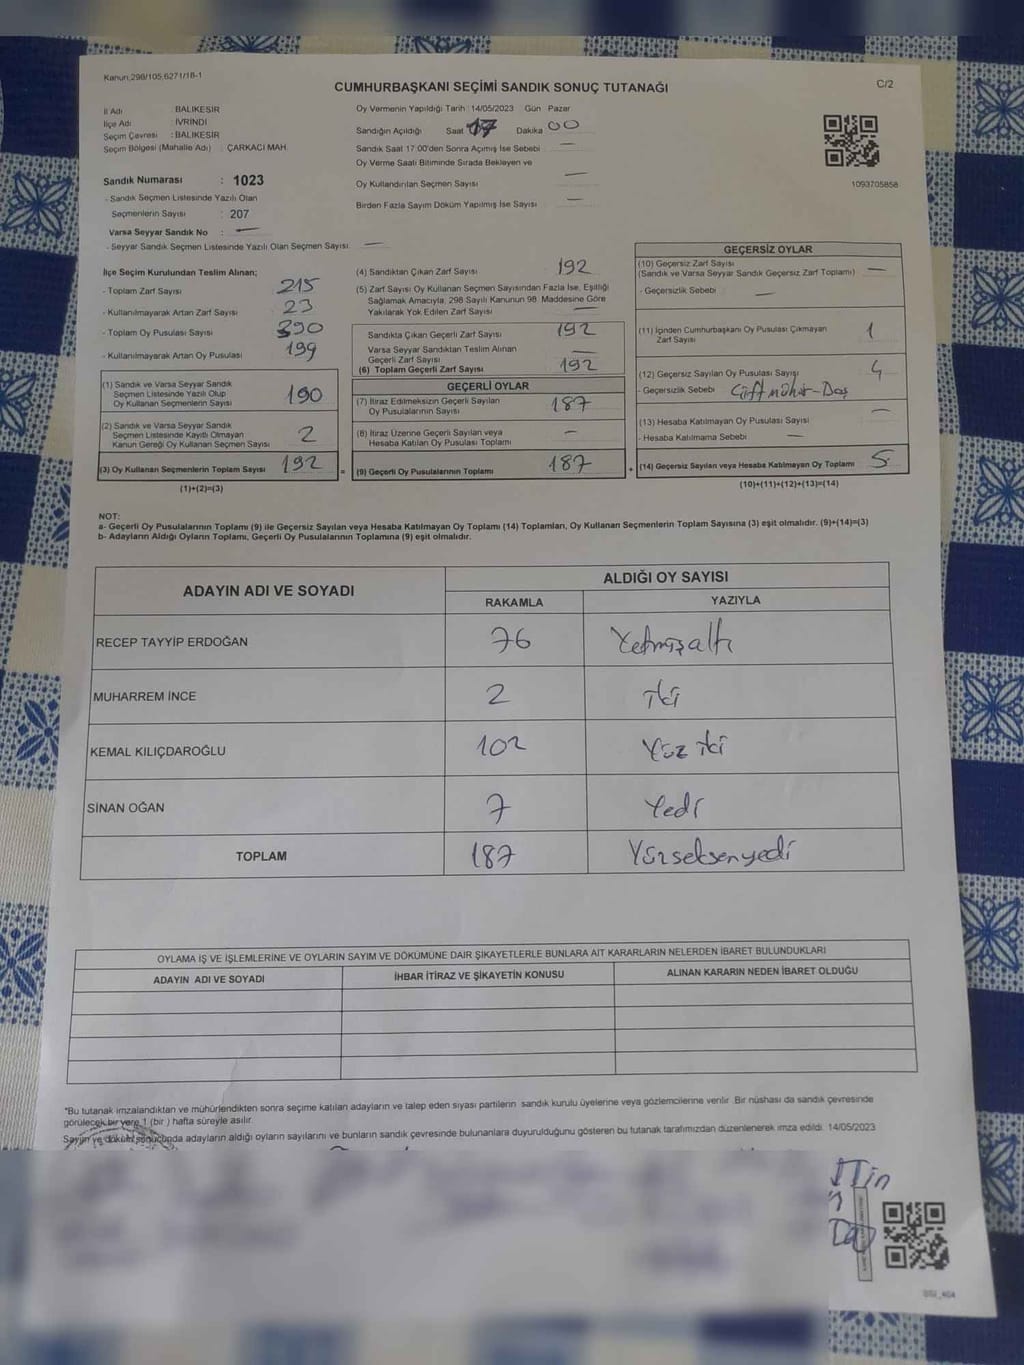 Kanun,298/105,6271/18-1
C/2
CUMHURBAŞKANI SEÇİMİ SANDIK SONUÇ TUTANAĞI
İl Adı : BALIKESİR
İlçe Adı : İVRİNDİ
Seçim Çevresi : BALIKESİR
Seçim Bölgesi (Mahalle Adı) : ÇARKACI MAH.
Sandık Numarası : 1023
- Sandık Seçmen Listesinde Yazılı Olan
Seçmenlerin Sayısı : 207
Varsa Seyyar Sandık No : —
- Seyyar Sandık Seçmen Listesinde Yazılı Olan Seçmen Sayısı: —
Oy Vermenin Yapıldığı Tarih : 14/05/2023 Gün Pazar
Sandığın Açıldığı Saat 17 Dakika 00
Sandık Saat 17:00'den Sonra Açımış İse Sebebi —
Oy Verme Saati Bitiminde Sırada Bekleyen ve
Oy Kullandırılan Seçmen Sayısı —
Birden Fazla Sayım Döküm Yapılmış İse Sayısı —
1093705858
İlçe Seçim Kurulundan Teslim Alınan;
- Toplam Zarf Sayısı 215
- Kullanılmayarak Artan Zarf Sayısı 23
- Toplam Oy Pusulası Sayısı 390
- Kullanılmayarak Artan Oy Pusulası 199
(1) Sandık ve Varsa Seyyar Sandık
Seçmen Listesinde Yazılı Olup
Oy Kullanan Seçmenlerin Sayısı 190
(2) Sandık ve Varsa Seyyar Sandık
Seçmen Listesinde Kayıtlı Olmayan
Kanun Gereği Oy Kullanan Seçmen Sayısı 2
(3) Oy Kullanan Seçmenlerin Toplam Sayısı 192
(1)+(2)=(3)
=
(4) Sandıktan Çıkan Zarf Sayısı 192
(5) Zarf Sayısı Oy Kullanan Seçmen Sayısından Fazla İse, Eşitliği
Sağlamak Amacıyla, 298 Sayılı Kanunun 98. Maddesine Göre
Yakılarak Yok Edilen Zarf Sayısı —
Sandıkta Çıkan Geçerli Zarf Sayısı 192
Varsa Seyyar Sandıktan Teslim Alınan
Geçerli Zarf Sayısı —
(6) Toplam Geçerli Zarf Sayısı 192
GEÇERLİ OYLAR
(7) İtiraz Edilmeksizin Geçerli Sayılan
Oy Pusulalarının Sayısı 187
(8) İtiraz Üzerine Geçerli Sayılan veya
Hesaba Katılan Oy Pusulası Toplamı —
(9) Geçerli Oy Pusulalarının Toplamı 187
+
GEÇERSİZ OYLAR
(10) Geçersiz Zarf Sayısı
(Sandık ve Varsa Seyyar Sandık Geçersiz Zarf Toplamı) —
- Geçersizlik Sebebi —
(11) İçinden Cumhurbaşkanı Oy Pusulası Çıkmayan
Zarf Sayısı 1
(12) Geçersiz Sayılan Oy Pusulası Sayısı 4
- Geçersizlik Sebebi Çift mühür-Boş
(13) Hesaba Katılmayan Oy Pusulası Sayısı —
- Hesaba Katılmama Sebebi —
(14) Geçersiz Sayılan veya Hesaba Katılmayan Oy Toplamı 5
(10)+(11)+(12)+(13)=(14)
NOT:
a- Geçerli Oy Pusulalarının Toplamı (9) ile Geçersiz Sayılan veya Hesaba Katılmayan Oy Toplamı (14) Toplamları, Oy Kullanan Seçmenlerin Toplam Sayısına (3) eşit olmalıdır. (9)+(14)=(3)
b- Adayların Aldığı Oyların Toplamı, Geçerli Oy Pusulalarının Toplamına (9) eşit olmalıdır.
ADAYIN ADI VE SOYADI
ALDIĞI OY SAYISI
RAKAMLA YAZIYLA
RECEP TAYYİP ERDOĞAN 76 Yetmişaltı
MUHARREM İNCE 2 iki
KEMAL KILIÇDAROĞLU 102 Yüz iki
SİNAN OĞAN 7 Yedi
TOPLAM 187 Yüzseksenyedi
OYLAMA İŞ VE İŞLEMLERİNE VE OYLARIN SAYIM VE DÖKÜMÜNE DAİR ŞİKAYETLERLE BUNLARA AİT KARARLARIN NELERDEN İBARET BULUNDUKLARI
ADAYIN ADI VE SOYADI İHBAR İTİRAZ VE ŞİKAYETİN KONUSU ALINAN KARARIN NEDEN İBARET OLDUĞU
*Bu tutanak imzalandıktan ve mühürlendikten sonra seçime katılan adayların ve talep eden siyasi partilerin sandık kurulu üyelerine veya gözlemcilerine verilir. Bir nüshası da sandık çevresinde
görülecek bir yere 1 (bir) hafta süreyle asılır.
Sayım ve döküm sonucunda adayların aldığı oyların sayılarını ve bunların sandık çevresinde bulunanlara duyurulduğunu gösteren bu tutanak tarafımızdan düzenlenerek imza edildi. 14/05/2023